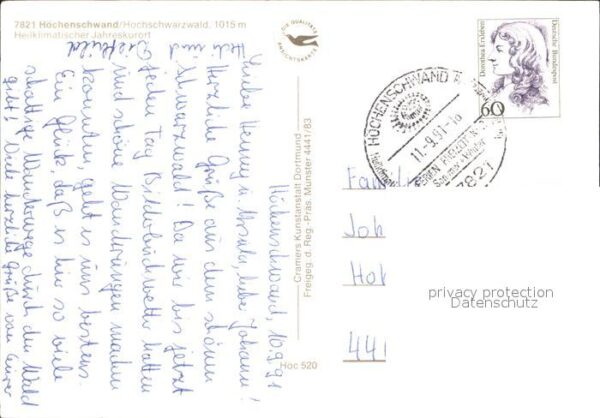 7821 Höchenschwand/Hochschwarzwald. 1015 m
Heilklimatischer Jahreskurort
DIE QUALITÄTS
ANSICHTSKARTE
Höchenschwand, 10.9.91
Liebe Henny u. Ursula, liebe Johanni!
Herzliche Grüße aus dem schönen
Schwarzwald! Da wir bis jetzt
jeden Tag Bilderbuchwetter hatten
und schöne Wanderungen machen
konnten, geht es uns bestens.
Ein Glück, daß es hier so viele
schattige Wanderwege durch den Wald
gibt! Viele herzliche Grüße von Eurer
und
Cramers Kunstanstalt Dortmund
Freigeg. d. Reg.-Präs. Münster 4441/83
Hoc 520
Dorothea Erxleben
Deutsche Bundespost
60
HÖCHENSCHWAND
11.-9.91-10
Sommer + Winter
7821
Famili
Joh
Hok
44
privacy protection
Datenschutz